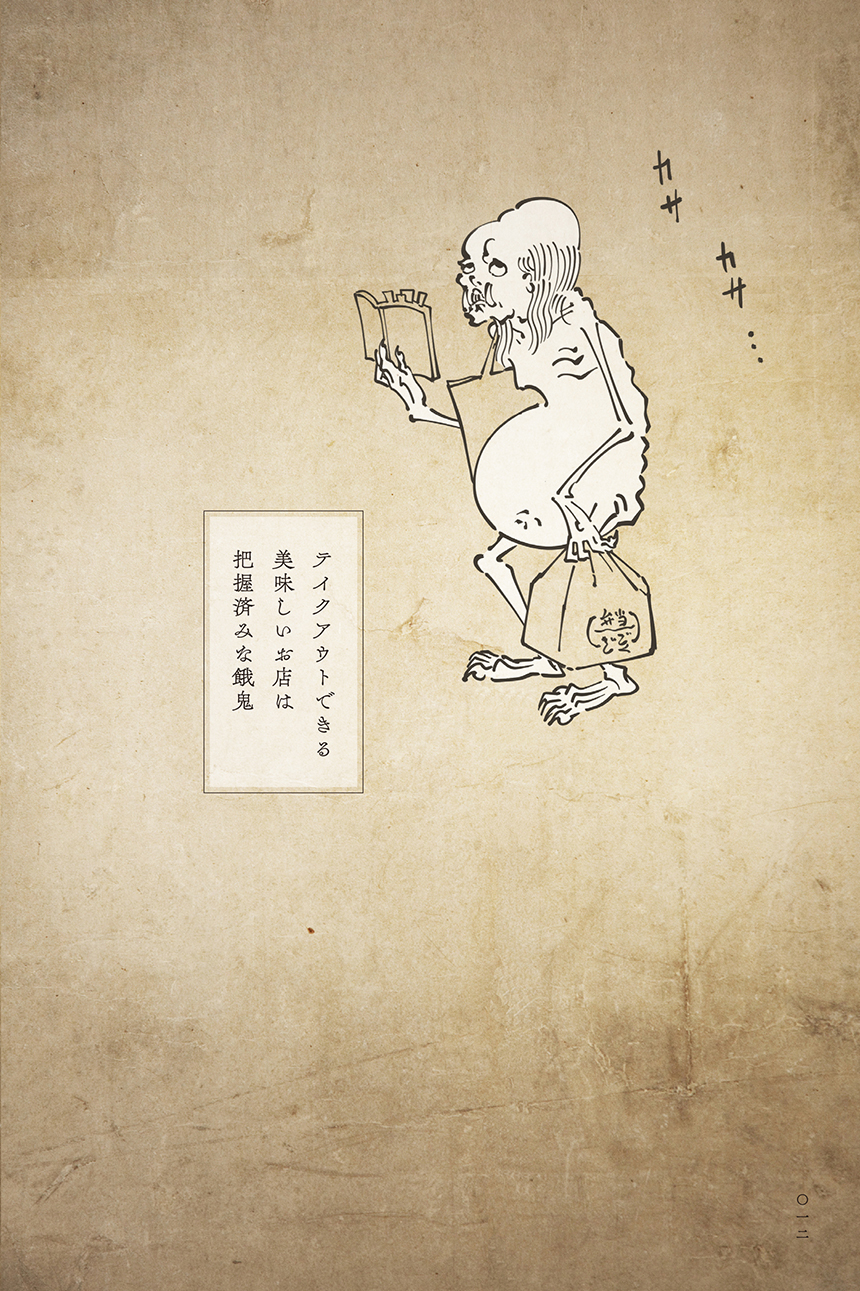 カサ
カサ…
テイクアウトできる
美味しいお店は
把握済みな餓鬼
弁当
どぞ
〇一二